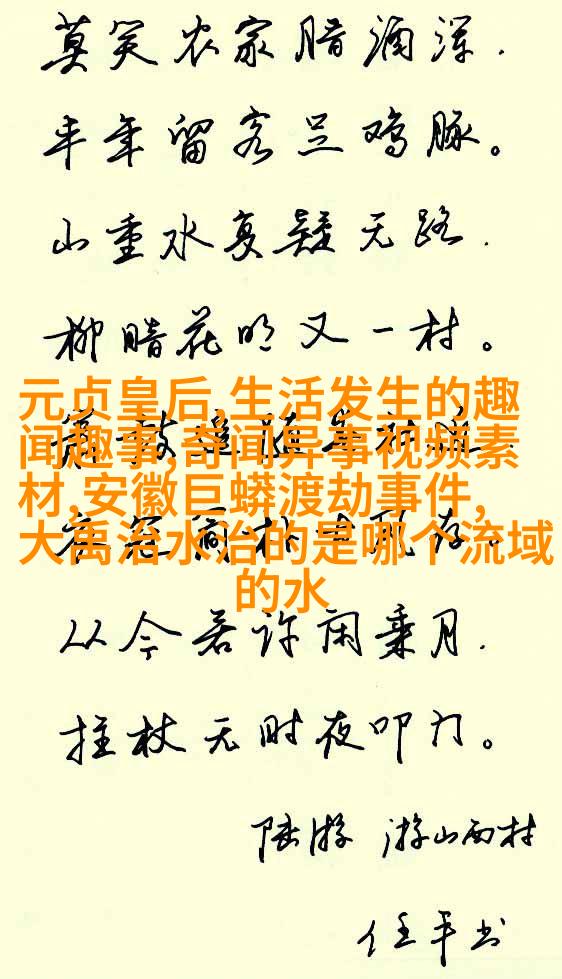 莫笑农家腊酒浑.
丰年留客足鸡豚。
山重水复疑无路.
柳暗花明又一村。
元贞皇后,生活发生的趣
闻趣事,奇闻异事视频素
材,安徽巨蟒渡劫事件,
大禹治水治的是哪个流域
的水
从今若许闲乘月.
拄杖无时夜叩门。
陆游 游山西村
任平书